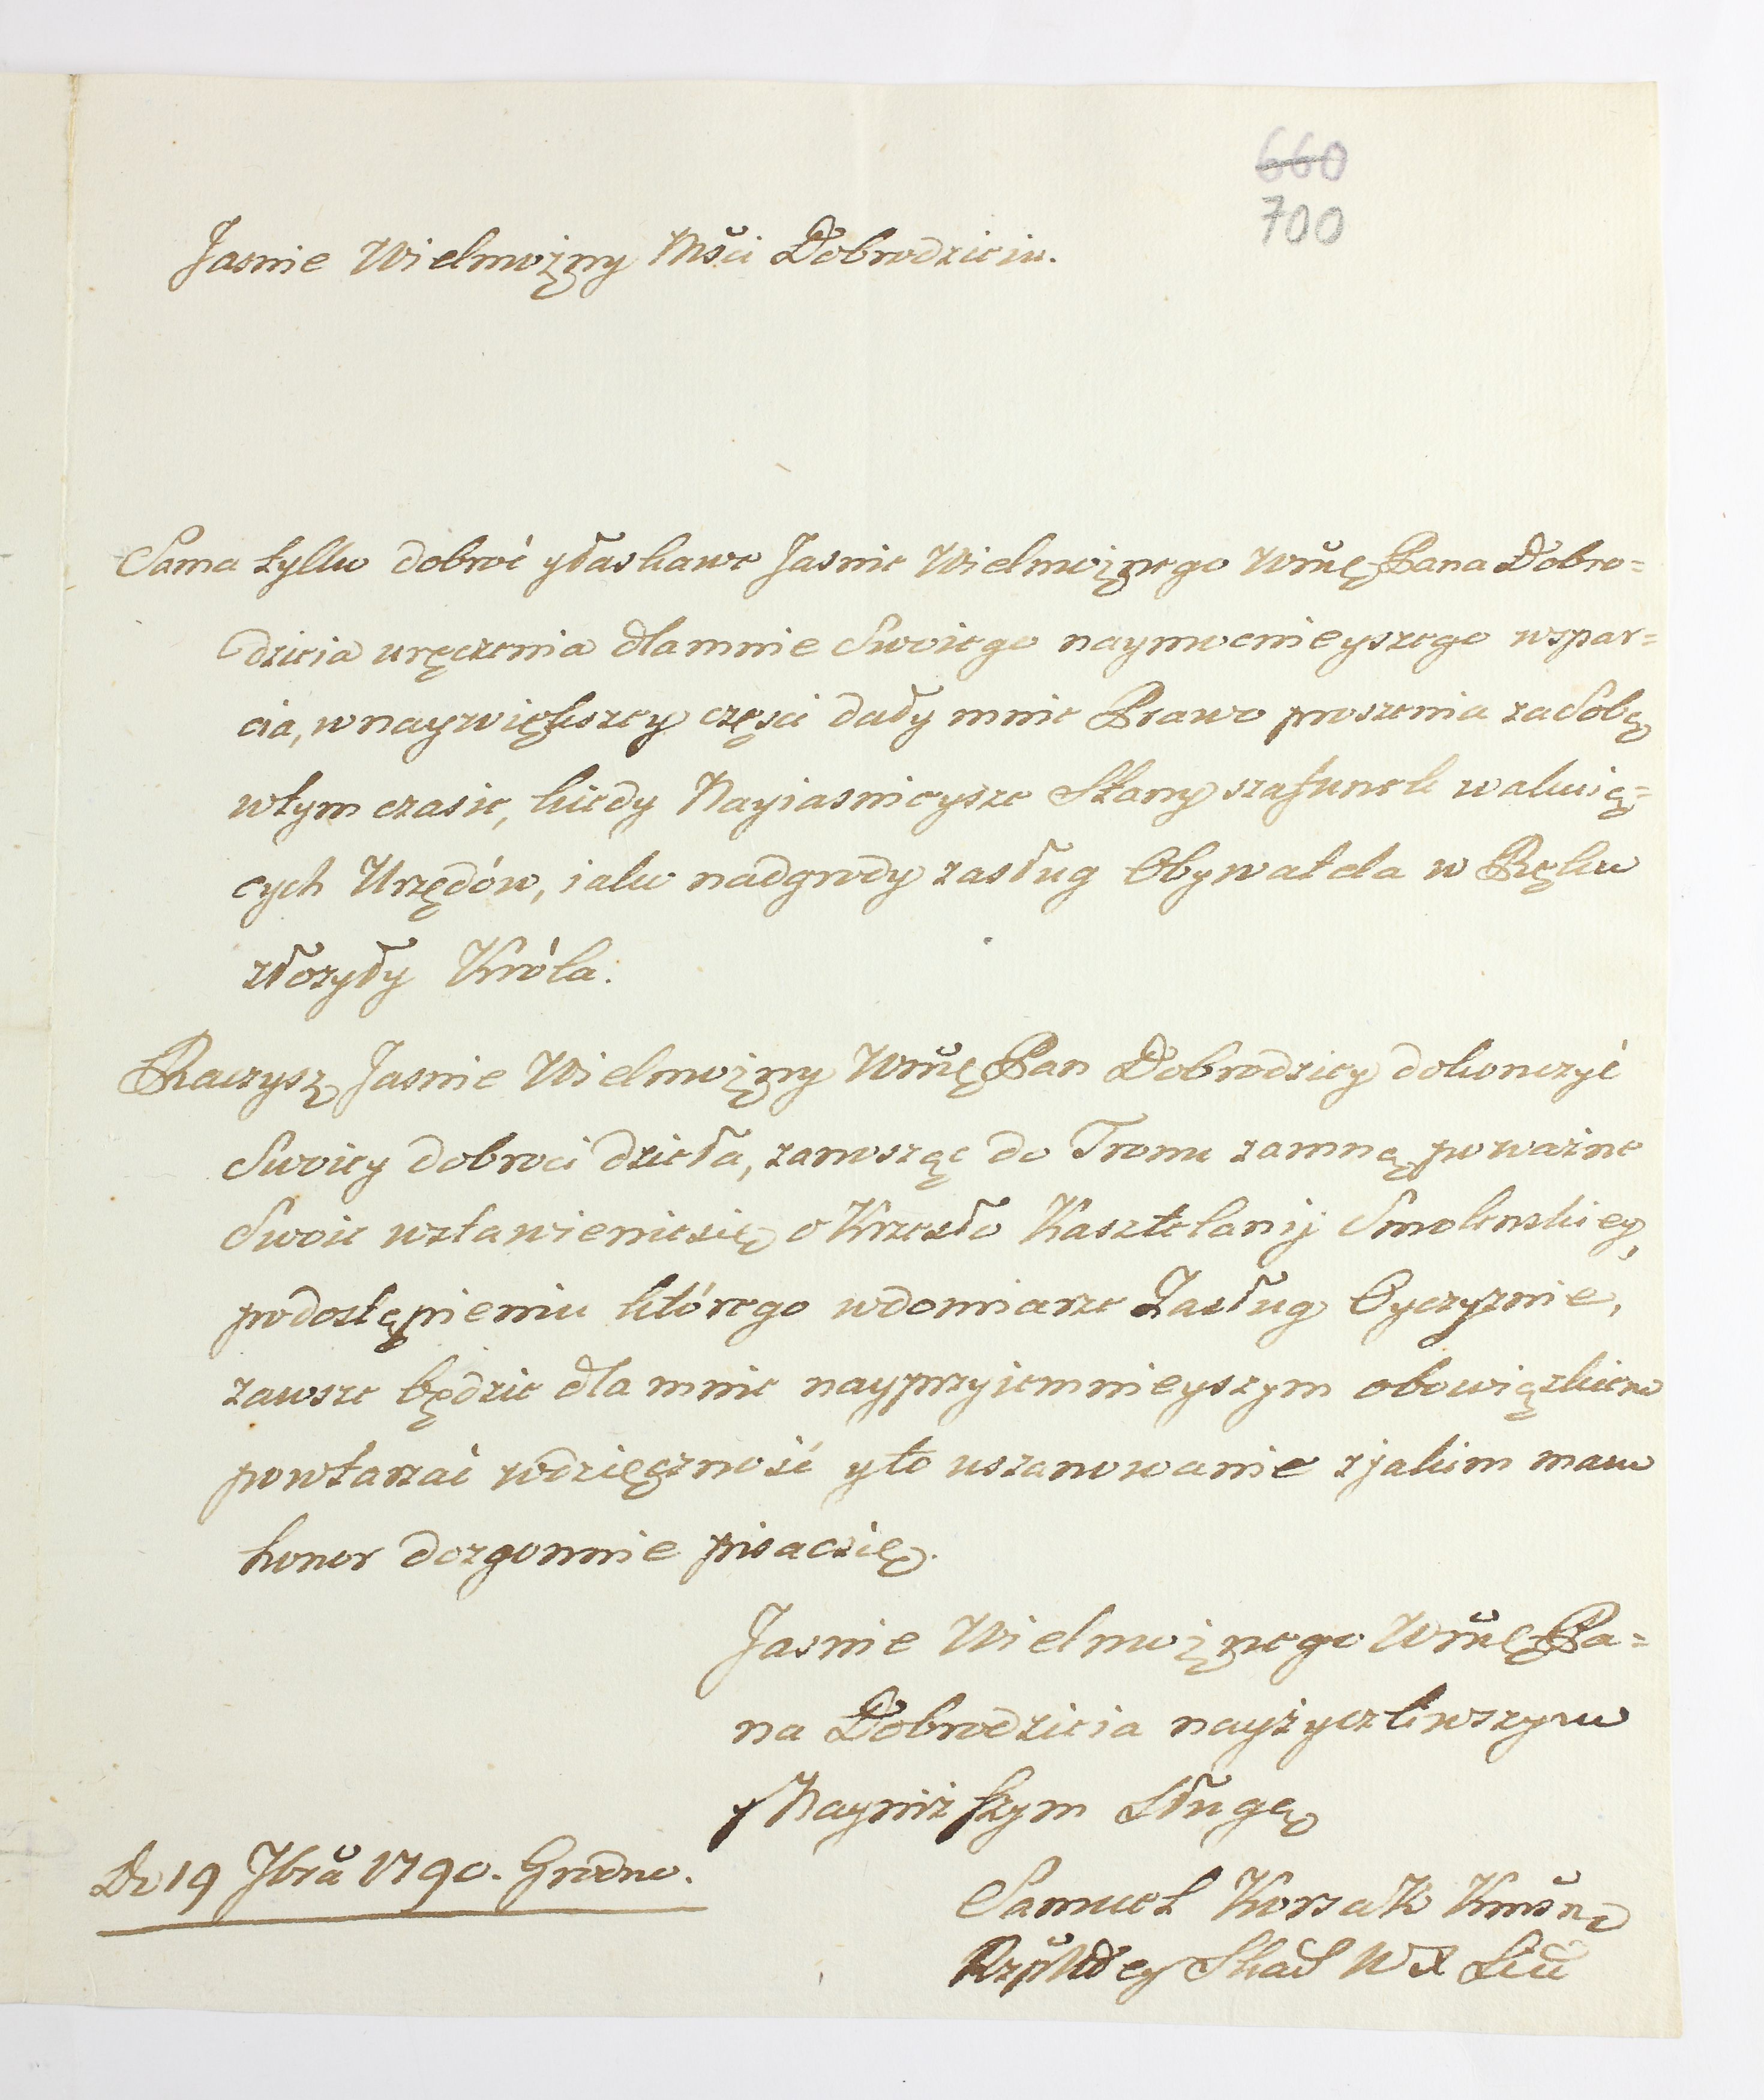 660
700
Jasnie Wielmożny Mści Dobrodzieiu.
Sama tylko dobroć y łaskawe Jasnie Wielmożnego Wmę Pana Dobro=
dzieia uręczenia dla mnie Swoiego naymocnieyszego wspar=
cia, w naywiększey częsci dały mnie Prawo proszenia za Sobą
w tym czasie, kiedy Nayiasnieysze Stany szafunek wakuią=
cych Urzędów, iako nadgrody zasług Obywatela w Ręku
złożyły Króla.
Raczysz Jasnie Wielmożny Wmę Pan Dobrodziey dokonczyć
Swoiey dobroci dzieła, zanosząc do Tronu zamną poważne
Swoie wstawieniesię o Krzesło Kasztelanij Smolenskiey,
po dostąpieniu którego w domiarze Zasług Oyczyznie,
zawsze będzie dla mnie nayprzyiemnieyszym obowiązkiem
powtarzać wdzięczność y to uszanowanie z jakim mam
honor dozgonnie pisacsię.
Jasnie Wielmożnego Wmę Pa=
na Dobrodzieia nayżyczliwszym
y Nayniższym Sługą
Samuel Korsak
D. 19 Jbrã 1790. Grodno.